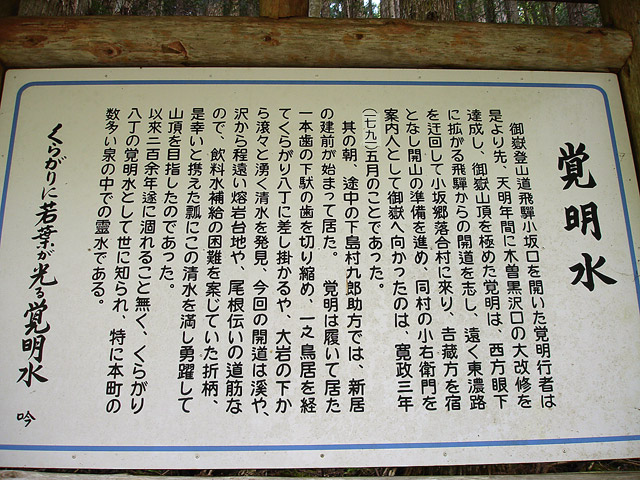 覚明水
御嶽登山道飛騨小坂口を開いた覚明行者は
是より先、天明年間に木曽黒沢口の大改修を
達成し、御嶽山頂を極めた覚明は、西方眼下
に拡がる飛騨からの開道を志し、遠く東濃路
を迂回して小坂郷落合村に來り、吉蔵方を宿
となし開山の準備を進め、同村の小右衛門を
案内人として御嶽へ向かったのは、寛政三年
(一七九一)五月のことであった。
其の朝、途中の下島村九郎助方では、新居
の建前が始まって居た。 覚明は履いて居た
一本歯の下駄の歯を切り縮め、一之鳥居を経
てくらがり八丁に差し掛かるや、大岩の下か
ら滾々と湧く清水を発見、今回の開道は溪や、
沢から程遠い熔岩台地や、尾根伝いの道筋な
ので、飲料水補給の困難を案じていた折柄、
是幸いと携えた瓢にこの清水を満し勇躍して
山頂を目指したのであった。
以來二百余年遂に涸れること無く、くらがり
八丁の覚明水として世に知られ、特に本町の
数多い泉の中での霊水である。
くらがりに若葉が光る覚明水
吟